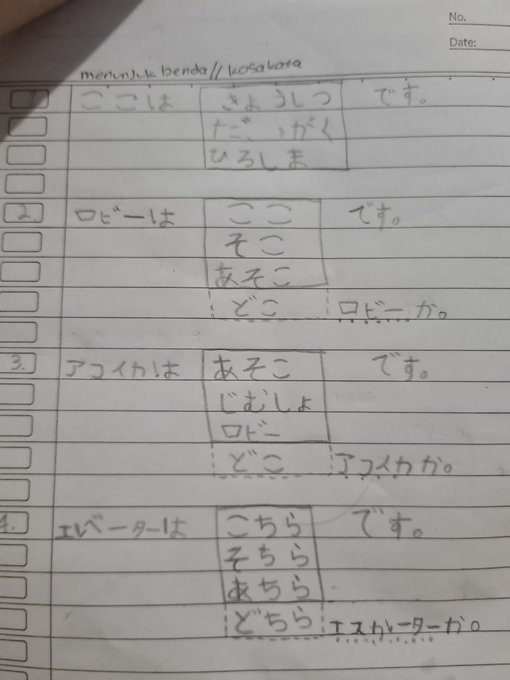 No.
Date:
menunjuk benda // kosakata
ここは きょうしつ です。
だいがく
ひろしま
2. ロビーは ここ です。
そこ
あそこ
どこ ロビーか。
3. アコイカは あそこ です。
じむしょ
ロビー
どこ アコイカか。
4. エレベーターは こちら です。
そちら
あちら
どちら エスカレーターか。